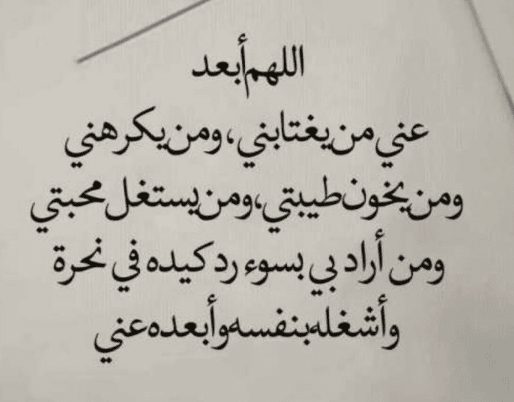 اللهم أبعد
عني من يغتابني، ومن يكرهني
ومن يخون طيبتي، ومن يستغل محبتي
ومن أراد بي بسوء رد كيده في نحرة
وأشغله بنفسه وأبعده عني